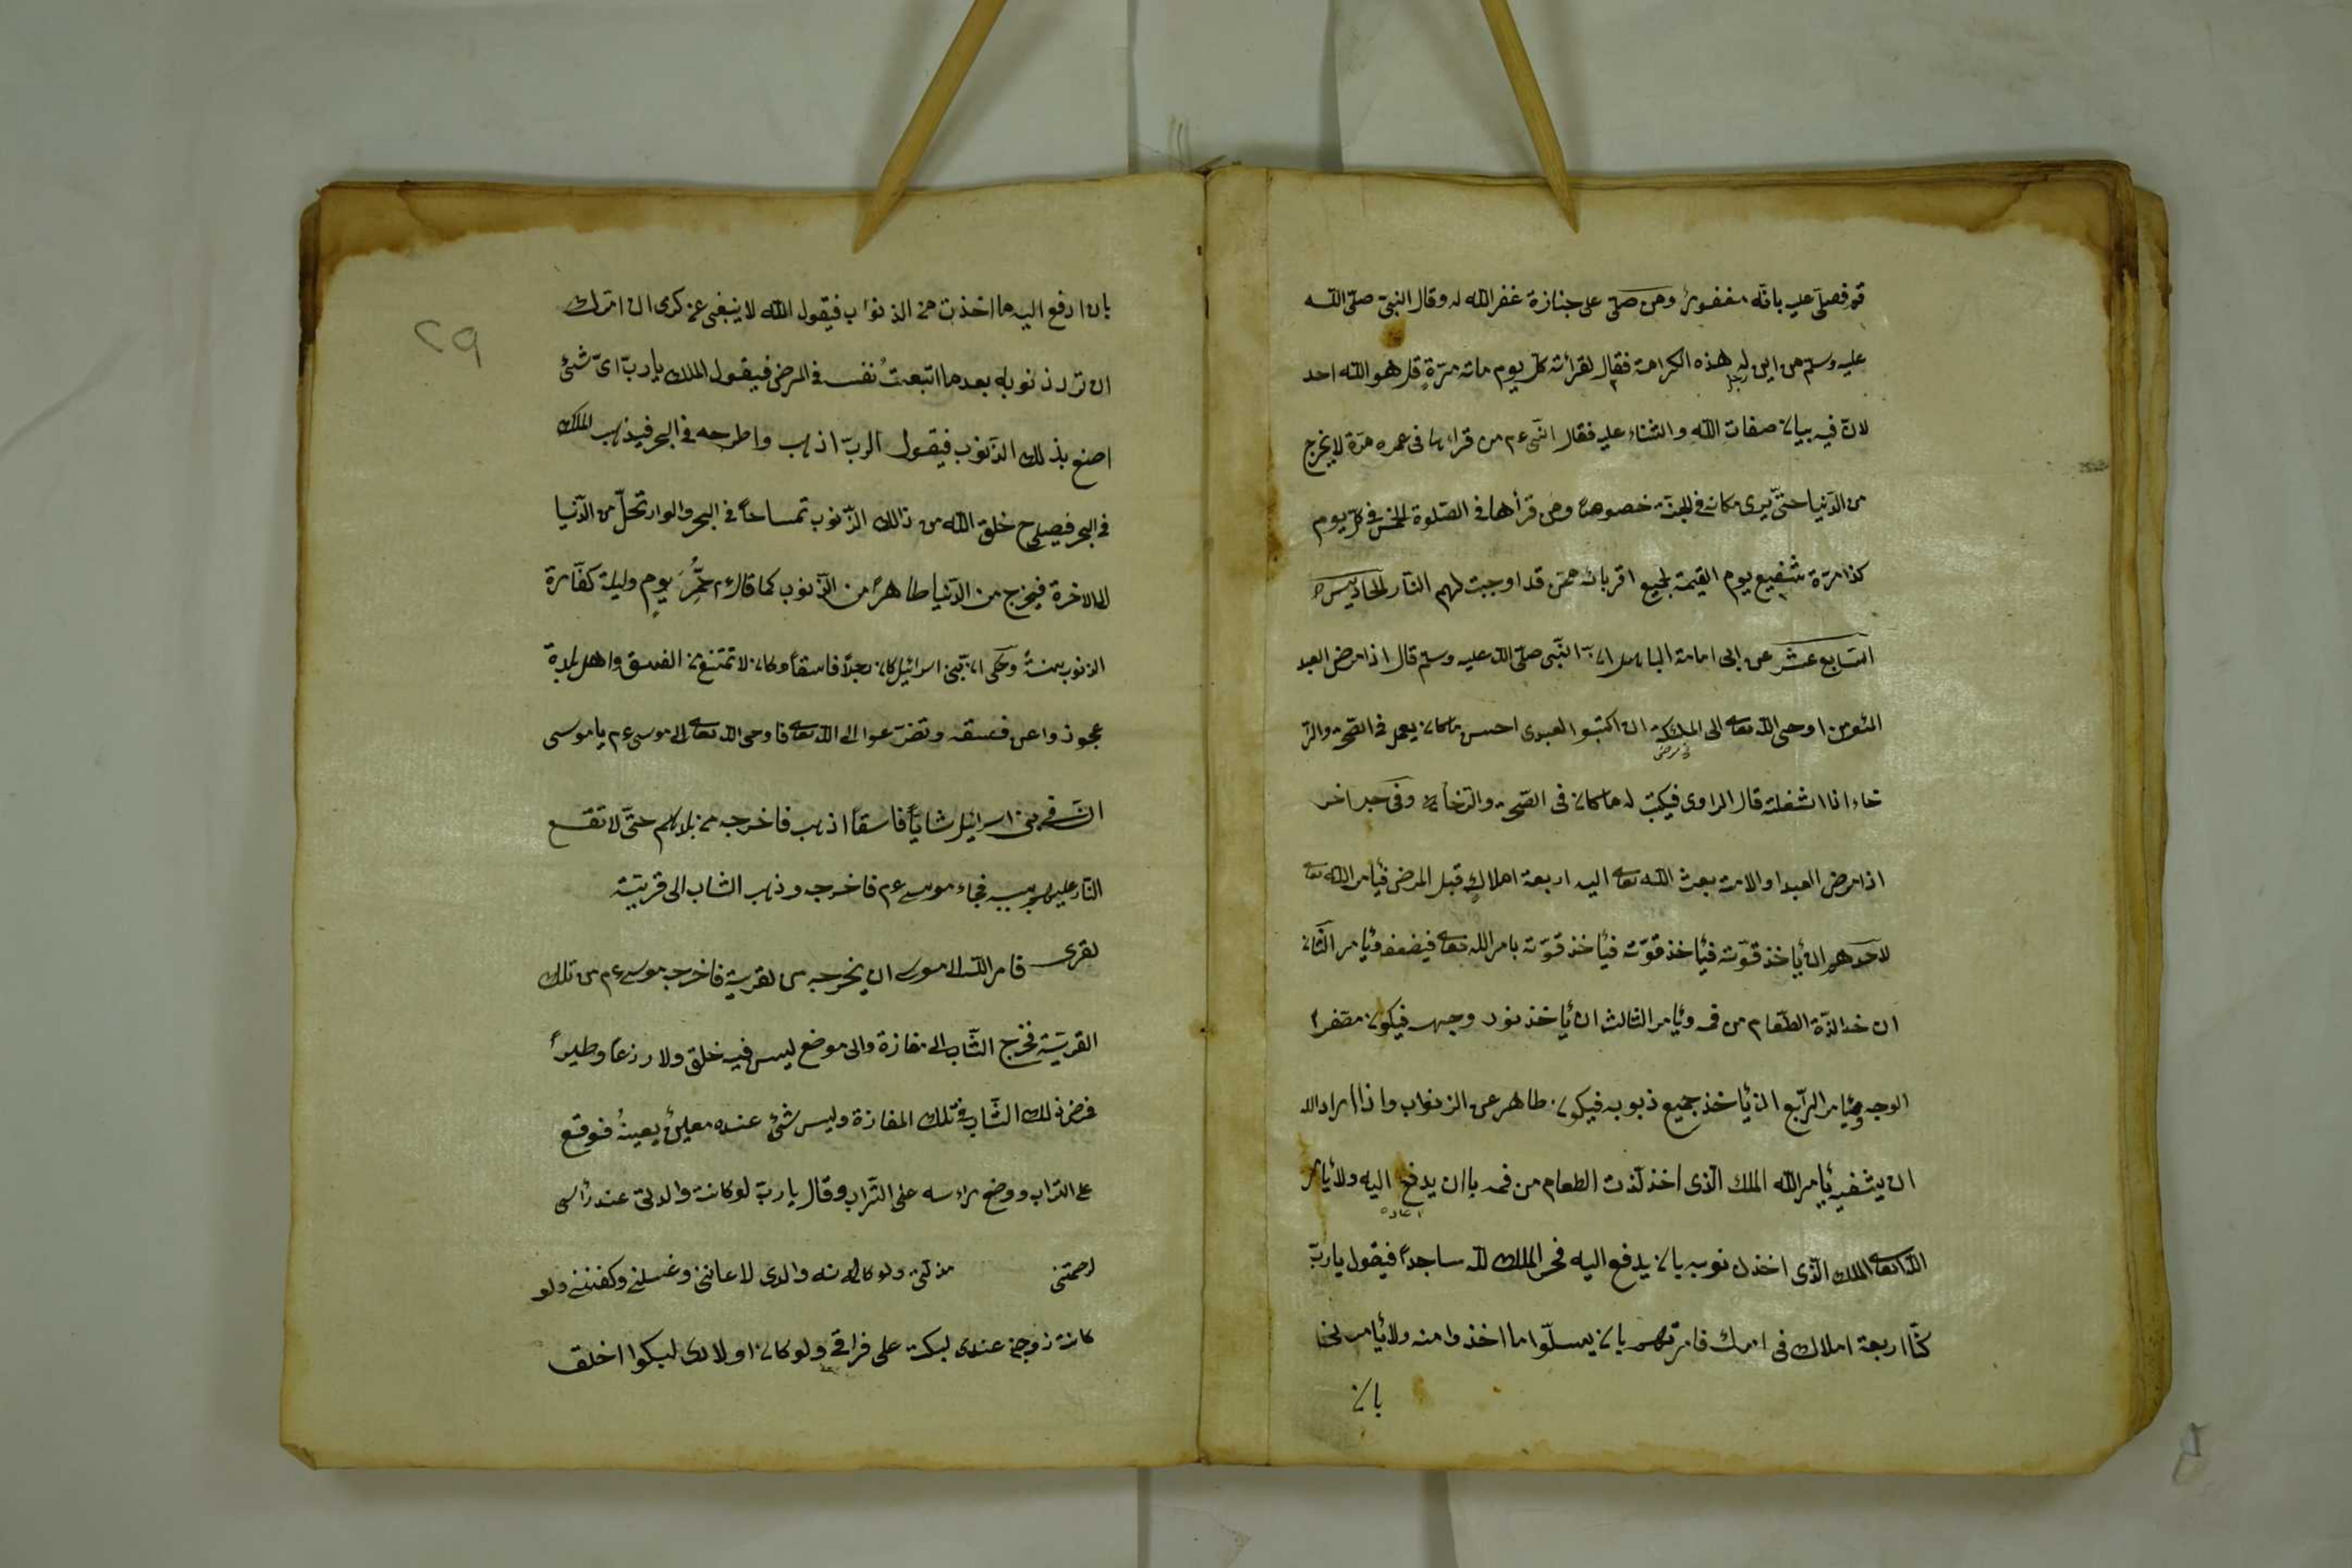 قم فصلى عليه بانه مغفور ومن صلى على جنازة غفر الله له وقال النبى صلى الله
عليه وسلم من اين له هذه الكرامة فقال لقرائته كل يوم مائة مرة قل هو الله احد
رجل
لان فيه بيان صفات الله والثناء عليه فقال النبى عم من قراها فى عمره مرة لا يخرج
من الدنيا حتى يرى مكانه فى الجنة خصوصا ومن قرأها فى الصلوة الخمس فى كل يوم
كذا مرة شفيع يوم القيمة لجميع اقربائه ممن قد اوجبت لهم النار الحديث
السابع عشر عن ابى امامة الباهلى ان النبى صلى الله عليه وسلم قال اذا مرض العبد
المؤمن اوحى الله تعالى الى الملائكة ان اكتبوا لعبدى احسن ما كان يعمل فى الصحة والر
فى مرض
خاء انا اشغلته قال الراوى فيكتب له ما كان فى الصحة والرخاء وفى خبر اخر
اذا مرض العبد او الامة بعث الله تعالى اليه اربعة املاك قبل المرض فيأمر الله تعالى
لاحدهم ان يأخذ قوته فيأخذ قوته فيأخذ قوته بامر الله تعالى فيضعف ويأمر الثانى
ان خذ لذة الطعام من فمه ويأمر الثالث ان يأخذ نور وجهه فيكون مصفرا
الوجه ويأمر الرابع ان يأخذ جميع ذنوبه فيكون طاهر عن الذنواب واذا اراد الله
ان يشفيه يأمر الله الملك الذى اخذ لذت الطعام من فمه باان يدفع اليه ولا يأمر
الله تعالى الملك الذى اخذ ذنوبه بان يدفع اليه فخر الملك لله ساجدا فيقول يا رب
كنا اربعة املاك فى امرك فامرتهم بان يسلوا ما اخذوا منه ولا يأمر لنا
بان
٢٩
بان ادفع اليه ما اخذت من الذنواب فيقول الله لا ينبغى من كرمى ان اترك
ان ترد ذنوبه بعد ما اتبعت نفسه فى المرض فيقول الملك يارب اى شئ
اصنع بذلك الذنوب فيقول الرب اذهب واطرحه فى البحر فيذهب الملك
فى البحر فيصلح خلق الله من ذالك الذنوب تمساحا فى البحر والوارتحل من الدنيا
الى الاخرة فيخرج من الدنيا طاهرا من الذنوب كما قال عم حمى يوم وليلة كفارة
الذنوب سنة وحكى ان بنى اسرائيل كان رجلا فاسقا وكان لا تمتنع من الفسق واهل بلدة
عجوذوا عن فسقه وتضرعوا الى الله تعالى فاوحى الله تعالى الى موسى عم يا موسى
ان فى بنى اسرائيل شابا فاسقا اذهب فاخرجه من بلادهم حتى لا تقع
النار عليهم بسببه فجاء موسى عم فاخرجه وذهب الشاب الى قريتة
لقرى فامر الله الى موسى ان يخرجه من لقرية فاخرجه موسى عم من تلك
القرية فخرج الشاب الى مفازة والى موضع ليس فيه خلق ولا رزعا وطيرا
فمرض ذلك الشاب فى تلك المفازة وليس شئ عنده معين يعينه فوقع
على التراب ووضع راءسه على التراب وقال يا رب لو كانت والدتى عند رأسى
لرحمتنى مذلتى ولو كان والدى لاعاننى وغسلنى وكفننى ولو
كانت زوجتى عندى لبكت على فراقى ولو كان اولادى لبكوا اخلق